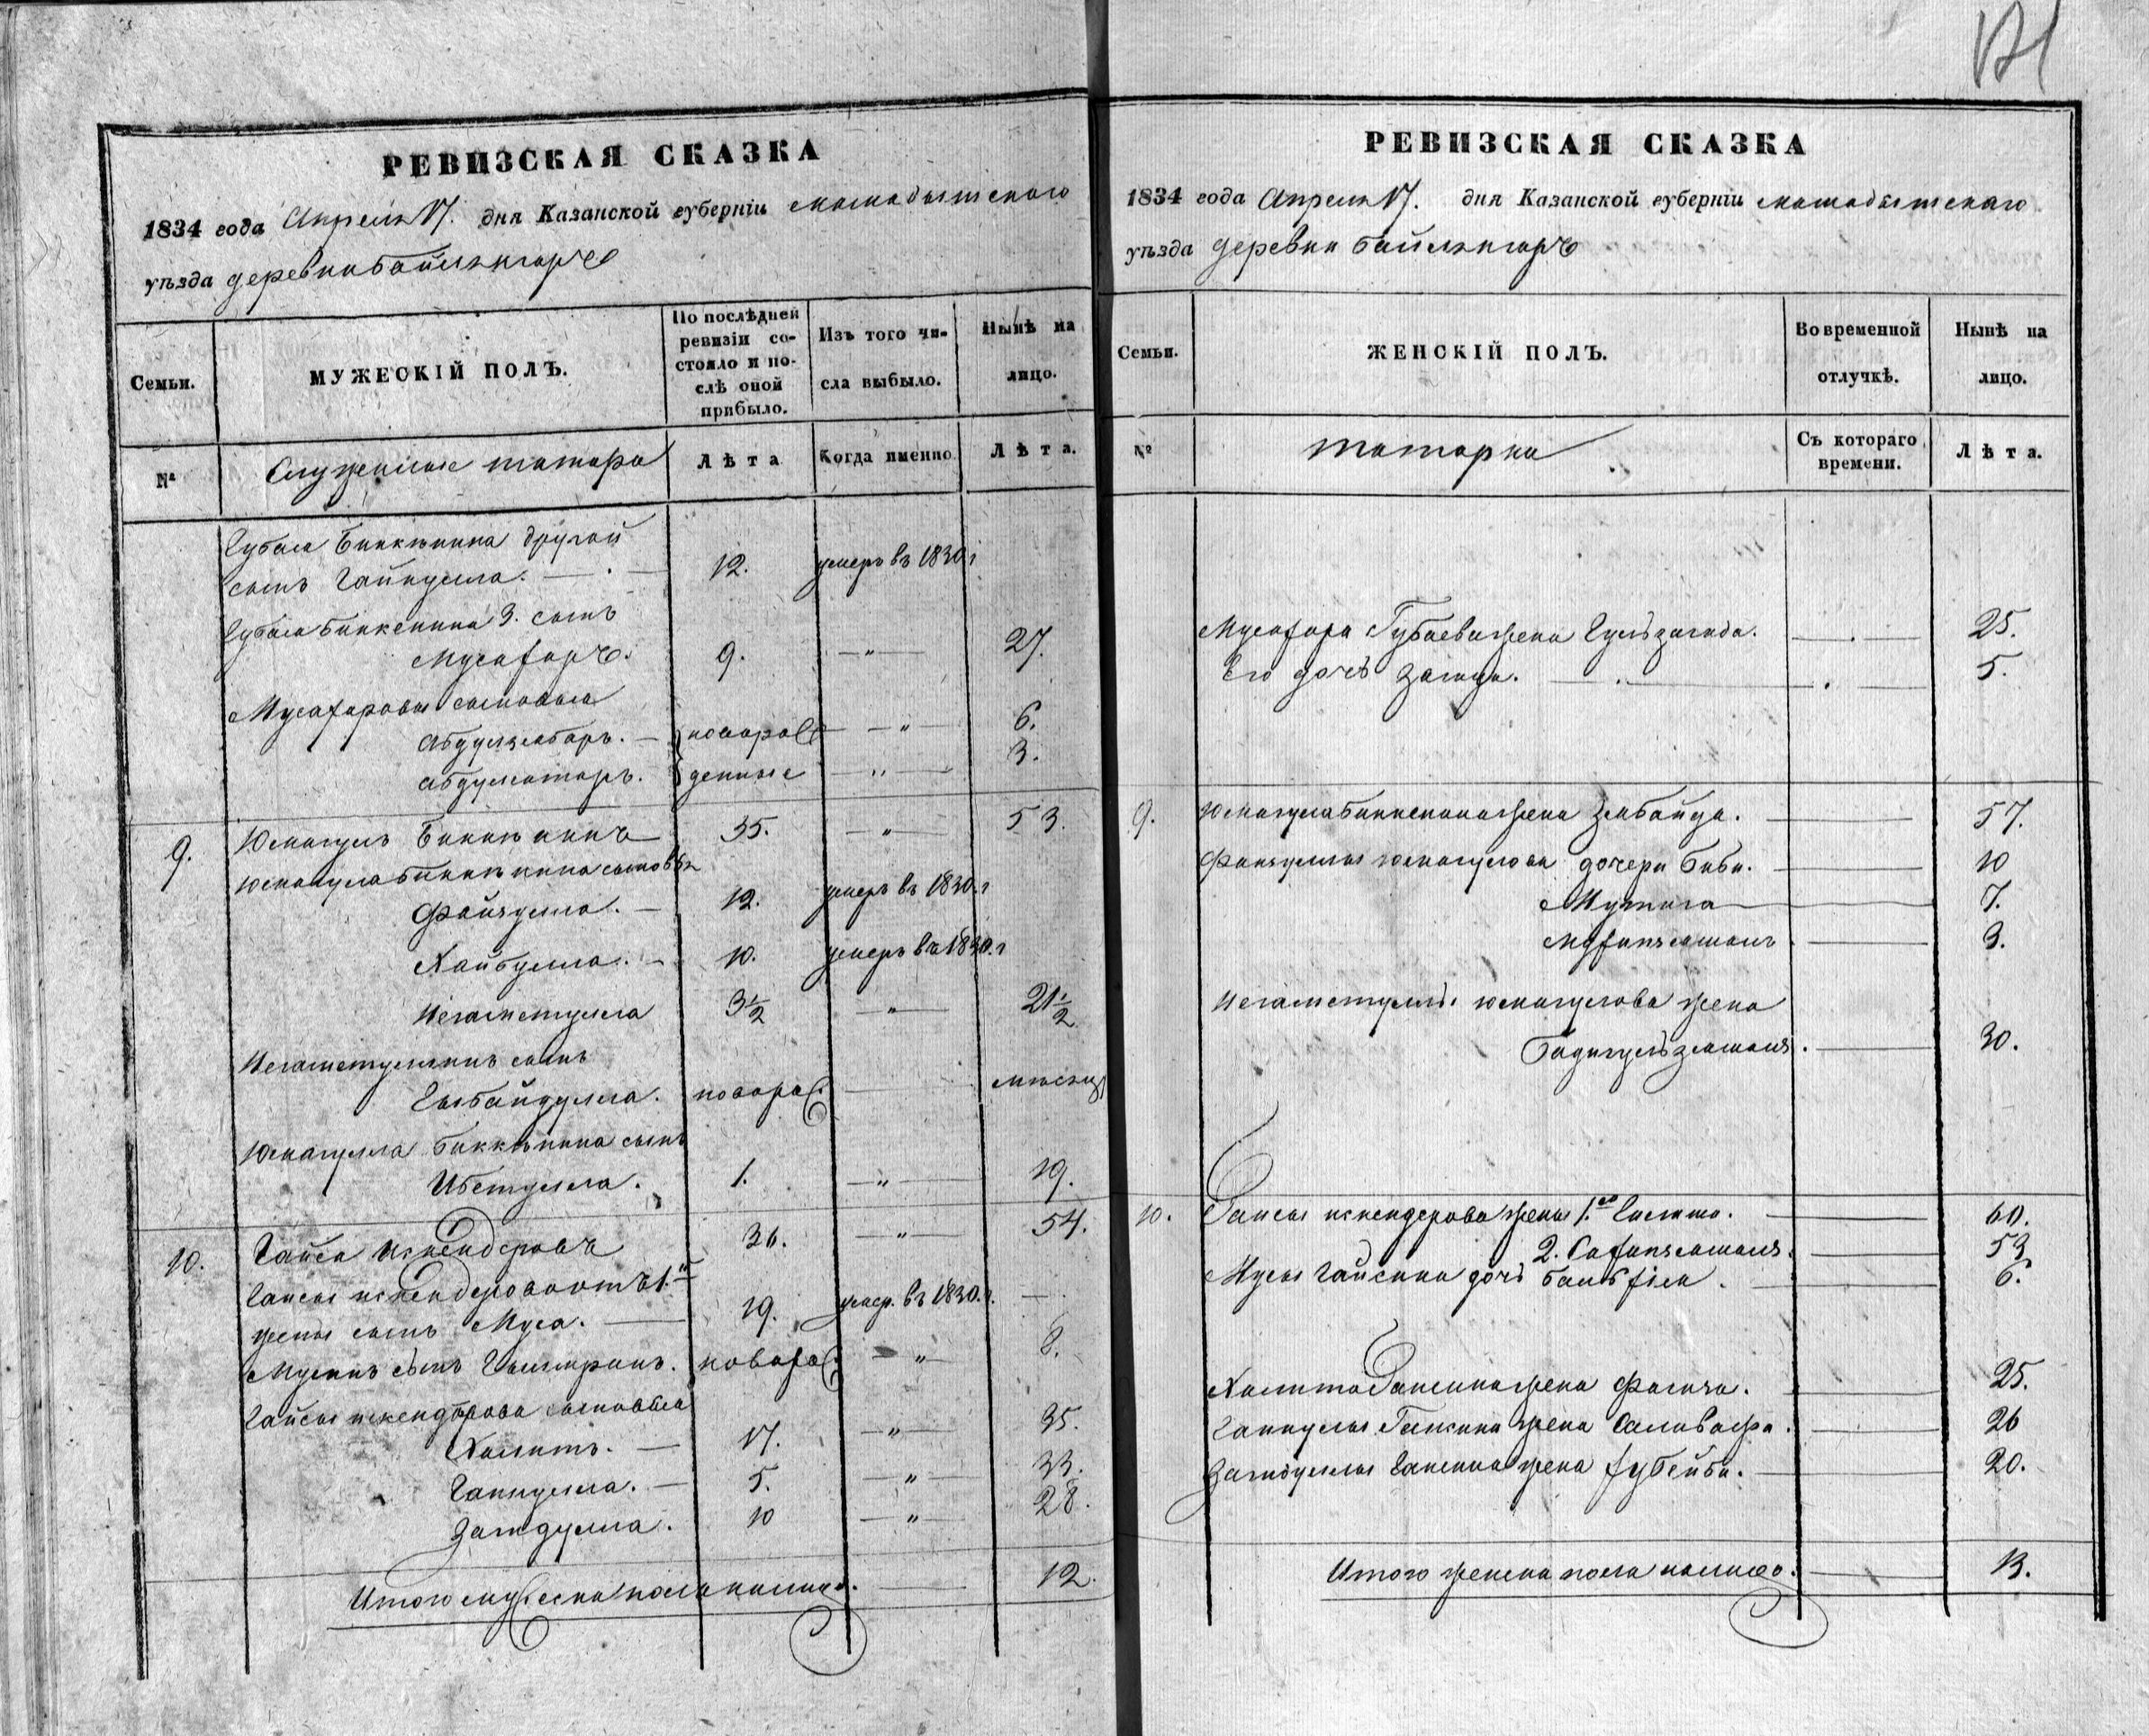 РЕВИЗСКАЯ СКАЗКА
1834 года Апреля 17. дня Казанской губерніи мамадышскаго
уѣзда деревни Байлянгаръ
Семьи.
МУЖЕСКІЙ ПОЛЪ.
По послѣдней ревизіи состояло и послѣ оной прибыло.
Изъ того числа выбыло.
Нынѣ на лицо.
№
Служилые татара
Лѣта
Когда именно
Лѣта.
Губая Биккѣнина другой
сынъ Гайнулла. 12. умеръ въ 1830 г
Губая Биккенина 3. сынъ
Мусафаръ. 9. — " — 27.
Мусафаровы сыновья
Абдулзабаръ. — новорож — " — 6.
Абдулсатаръ. денные — " — 3.
9. Юмагулъ Биккѣнинъ 35. — " — 53.
Юмагула Биккѣнина сыновья
Файзулла. — 12. умеръ въ 1830. г
Хайбулла. — 10. умеръ въ 1830. г
Негаметулла 3½ — " — 21½
Негаметуллинъ сынъ
Гыбайдулла. новорож. — мѣсяцъ
Юмагулла Биккѣнина сынъ
Ибетулла. 1. — " — 19.
10. Гайса Искендеровъ 36. — " — 54.
Гайсы искендерова отъ 1.й
жены сынъ Муса. — 19. умер. въ 1830. г. —
Мусинъ сынъ новорож. — " — 8.
Гайсы искендѣрова сыновья
Халитъ. — 17. — " — 35.
Гайнулла. — 5. — " — 23.
Загидулла. 10 — " — 28.
Итого мужеска пола налицо. — 12.
РЕВИЗСКАЯ СКАЗКА
1834 года Апреля 17. дня Казанской губерніи мамадышскаго
уѣзда деревни Байлянгаръ
Семьи.
ЖЕНСКІЙ ПОЛЪ.
Во временной отлучкѣ.
Нынѣ на лицо.
№
татарки
Съ котораго времени.
Лѣта.
Мусафара Губаева жена Гульзагида. — 25.
Его дочь Загида. — 5.
9. Юмагула Биккенина жена Зюбайда. — 57.
Файзуллы юмагулова дочери Биби. — 10
— 7.
— 3.
Негаметуллы юмагулова жена
Бадигульзямалъ. — 30.
10. Гайсы искендерова жены 1.ая — 60.
2. Сафизямалъ. — 53
Мусы Гайсина дочь — 6.
Халита Гайсина жена Фагиза. — 25.
Гайнуллы Гайсина жена — 26
Загидуллы Гайсина жена — 20.
Итого женска пола налицо. — 13.